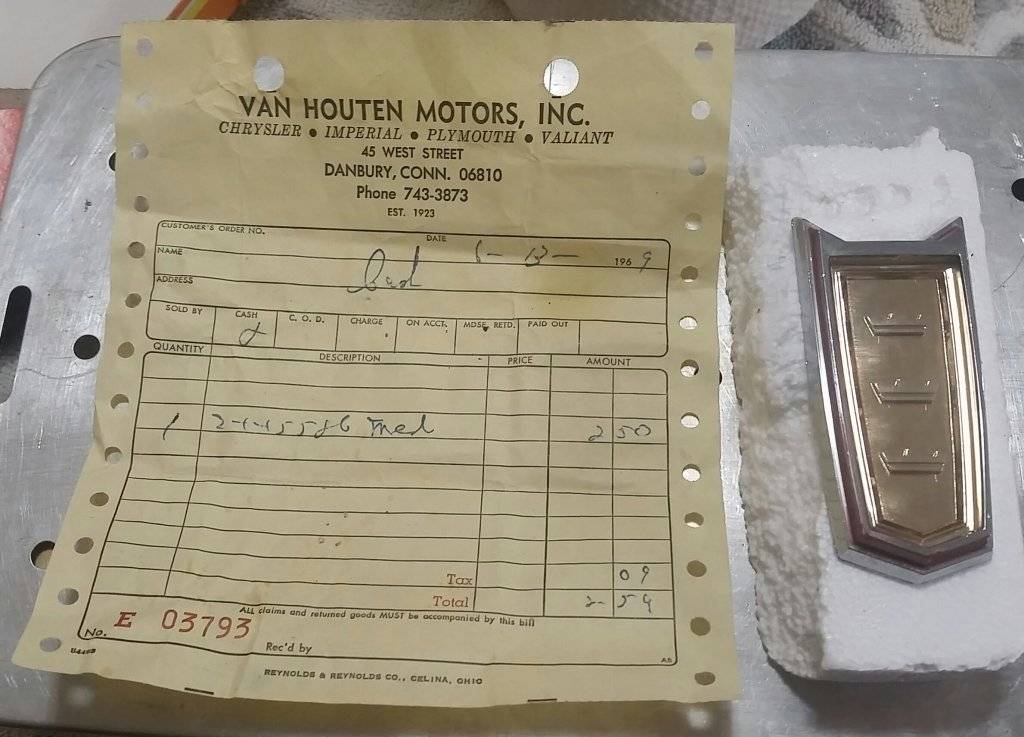 VAN HOUTEN MOTORS, INC.
CHRYSLER • IMPERIAL • PLYMOUTH • VALIANT
45 WEST STREET
DANBURY, CONN. 06810
Phone 743-3873
EST. 1923
CUSTOMER'S ORDER NO. DATE
NAME 196 9
ADDRESS
SOLD BY CASH C. O. D. CHARGE ON ACCT. MDSE. RETD. PAID OUT
QUANTITY DESCRIPTION PRICE AMOUNT
1 2 50
Tax 09
Total 2-59
ALL claims and returned goods MUST be accompanied by this bill
No. E 03793
Rec'd by
REYNOLDS & REYNOLDS CO., CELINA, OHIO